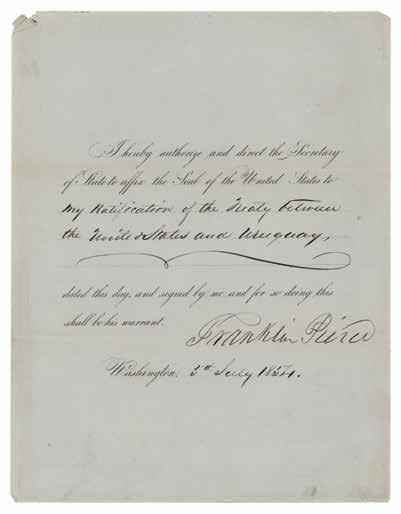 I hereby authorize and direct the Secretary
of State to affix the Seal of the United States to
my Ratification of the Treaty between
the United States and Uruguay,
dated this day, and signed by me and for so doing this
shall be his warrant.
Franklin Pierce
Washington, 3d July 1854.